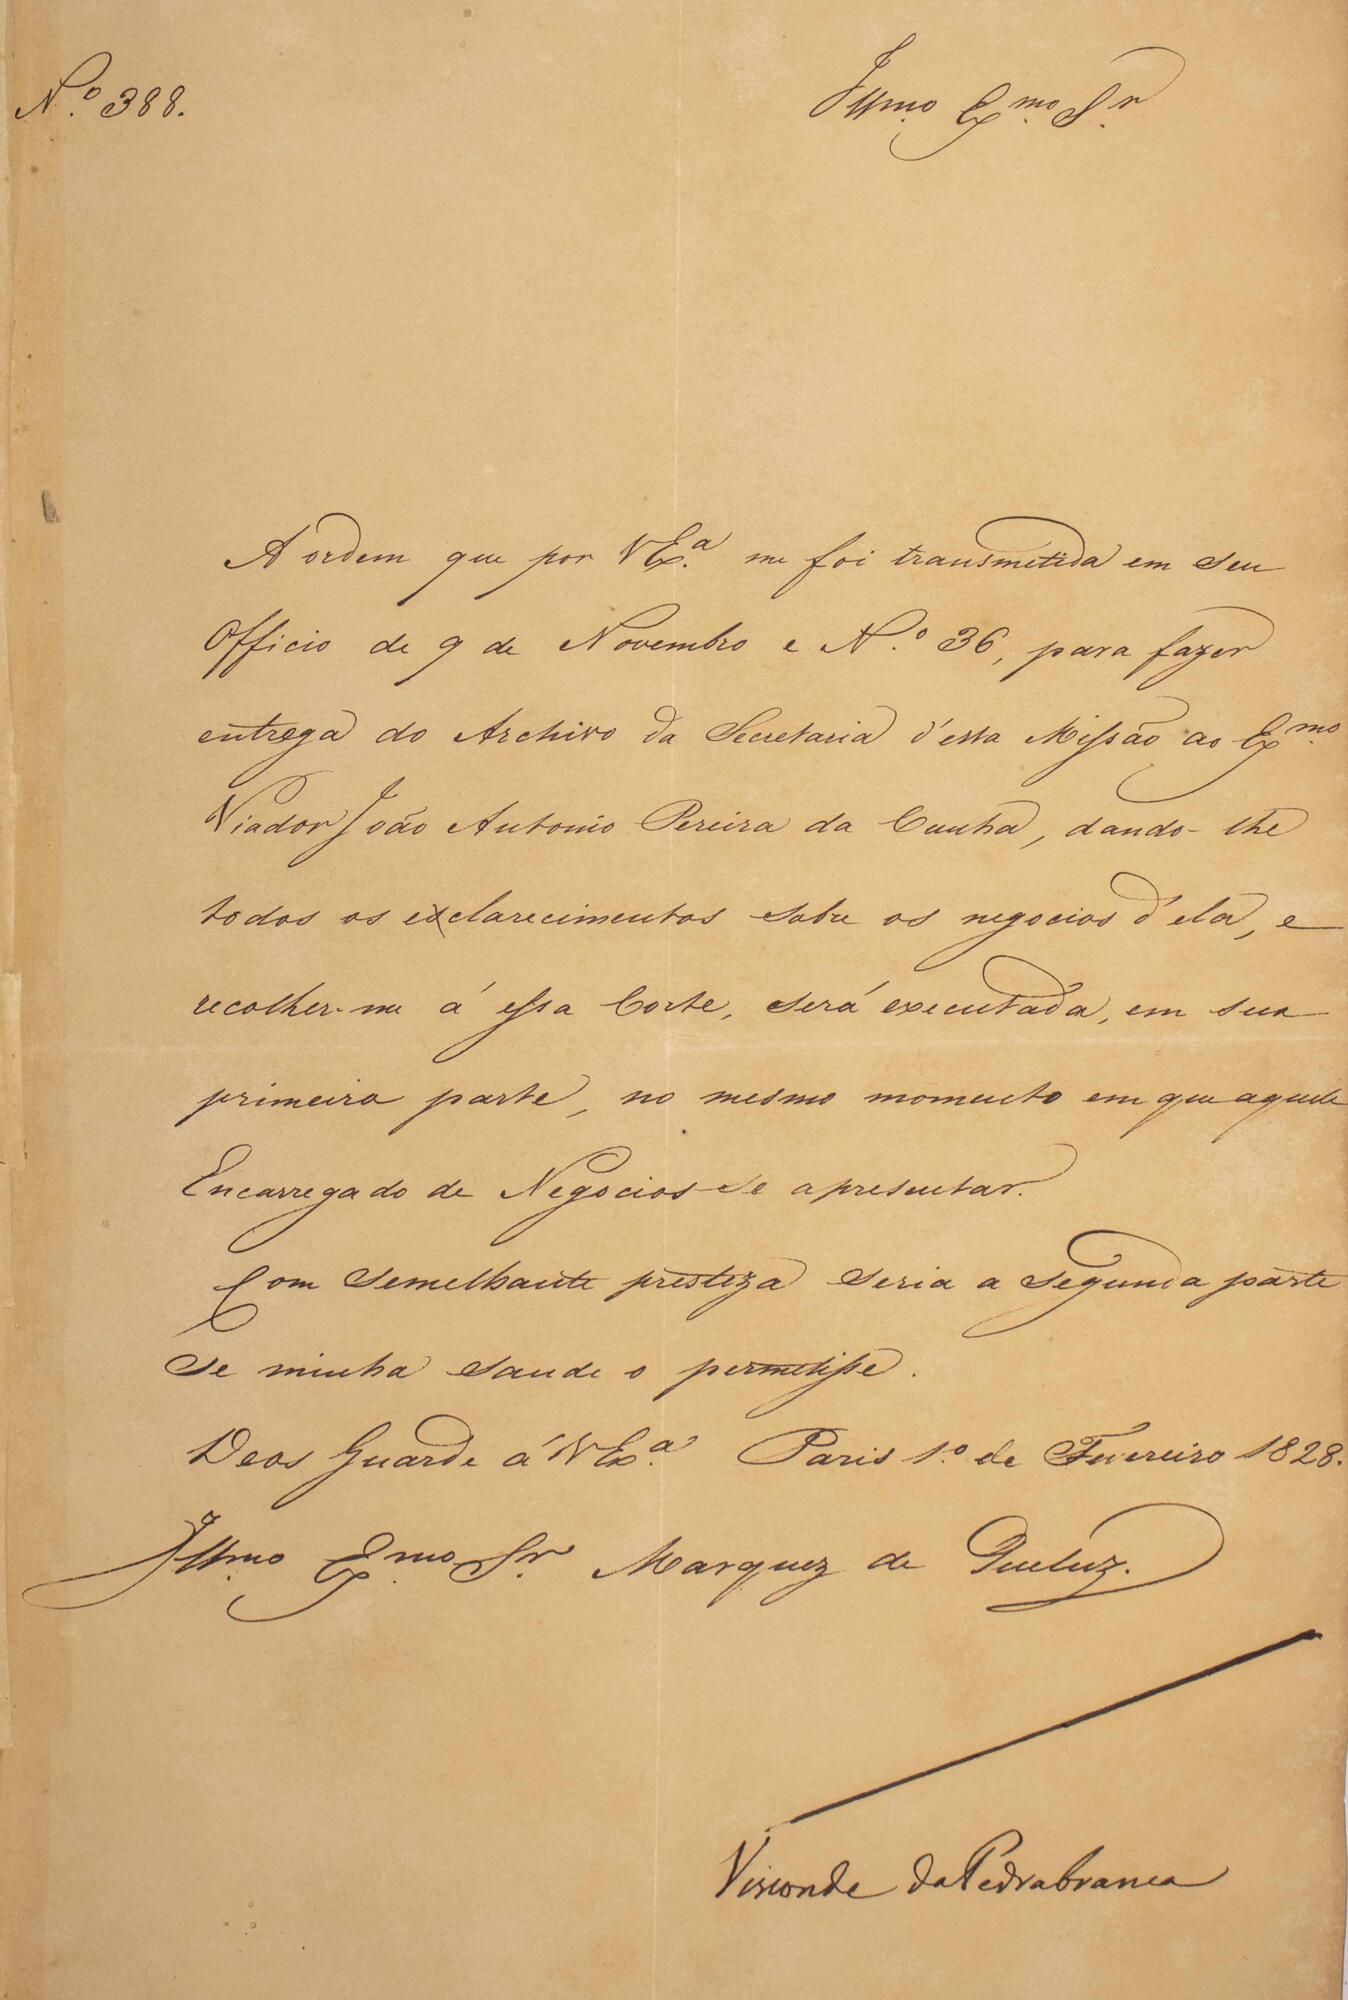 N.º 388.
Illmo. Exmo. Sr.
A ordem que por V Ex.ª me foi transmetida em seu
Officio de 9 de Novembro e N.º 36, para fazer
entrega do Archivo da Secretaria d'esta Missão ao Exmo.
Viador João Antonio Pereira da Cunha, dando-lhe
todos os exclarecimentos sobre os negocios d'ela, e
recolher-me á essa Corte, será executada, em sua
primeira parte, no mesmo momento em que aquele
Encarregado de Negocios se apresentar.
Com semelhante presteza seria a segunda parte
se minha saude o permetisse.
Deos Guarde á V Ex.ª Paris 1.º de Fevereiro 1828.
Illmo. Exmo. Sr. Marquez de Queluz.
Visconde da Pedrabranca